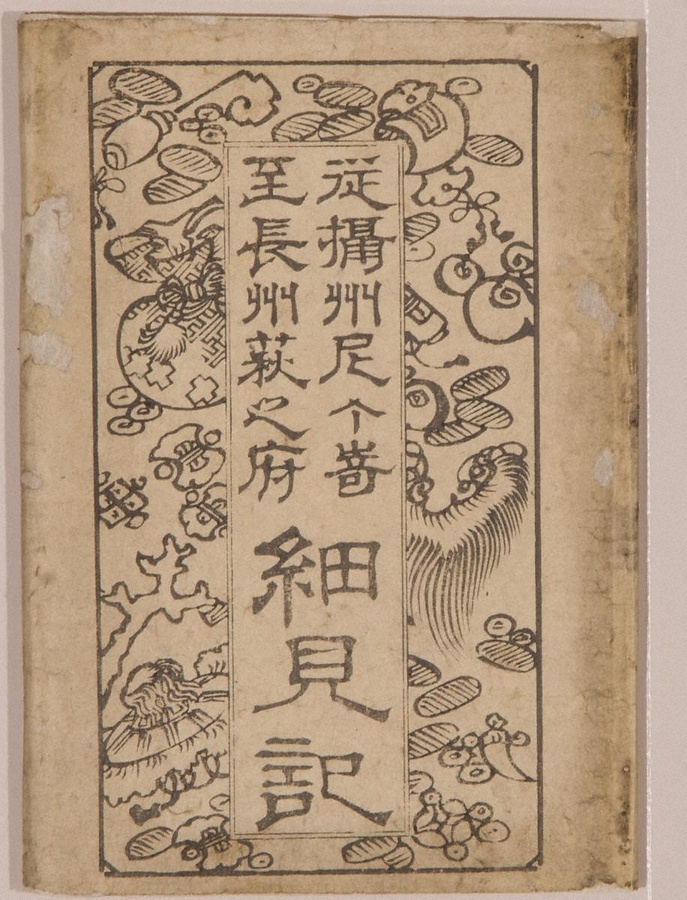 從攝州尼个嵜
至長州萩之府
細見記